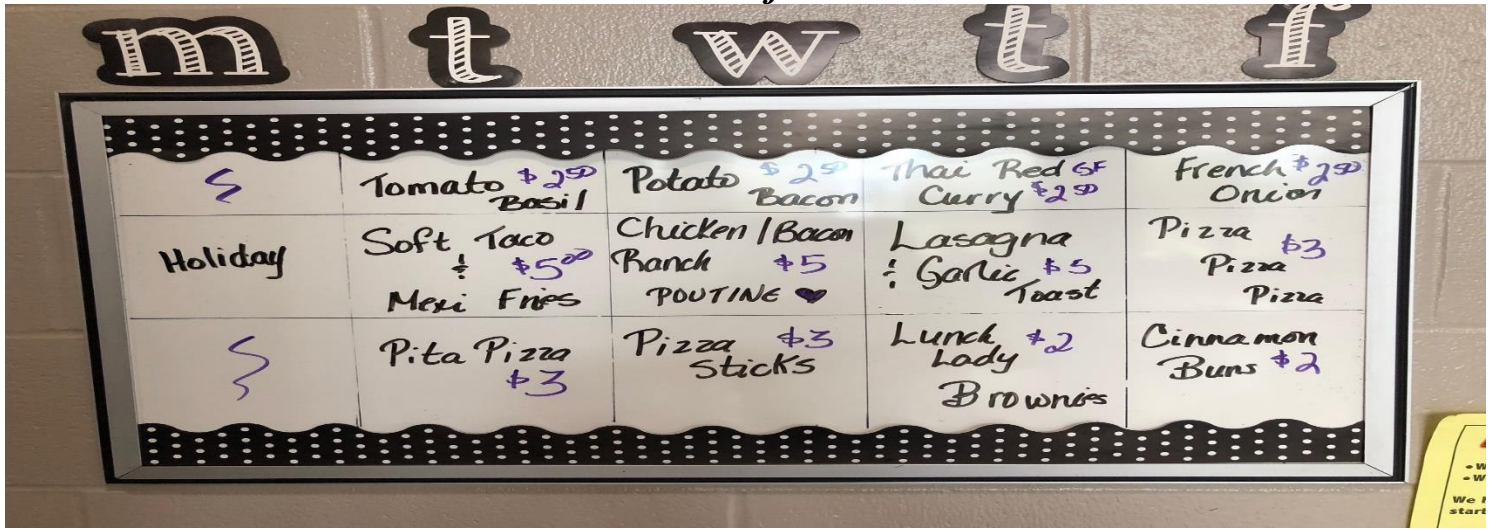 m t w t f
Tomato $2.50
Basil
Potato $2.50
Bacon
Thai Red GF
Curry $2.50
French $2.50
Onion
Holiday
Soft Taco
& $5.00
Mexi Fries
Chicken/Bacon
Ranch $5
POUTINE ♥
Lasagna
& Garlic $5
Toast
Pizza $3
Pizza
Pizza
Pita Pizza
$3
Pizza $3
Sticks
Lunch $2
Lady
Brownies
Cinnamon
Buns $2